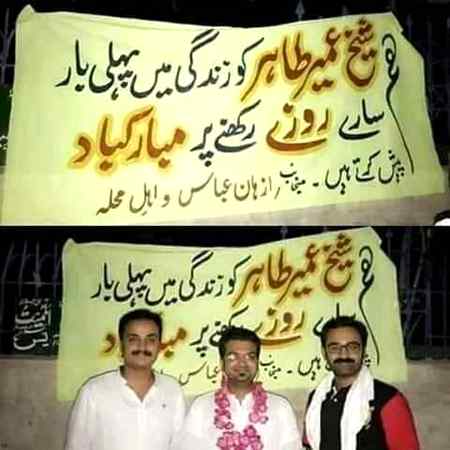 ہم شیخ عمیر طاہر کو زندگی میں پہلی بار
سارے روزے رکھنے پر مبارکباد
پیش کرتے ہیں۔ منجانب ازہان عباس و اہل محلہ
شیخ عمیر طاہر کو زندگی میں پہلی بار
روزے رکھنے پر
ہیں۔ منجانب عباس